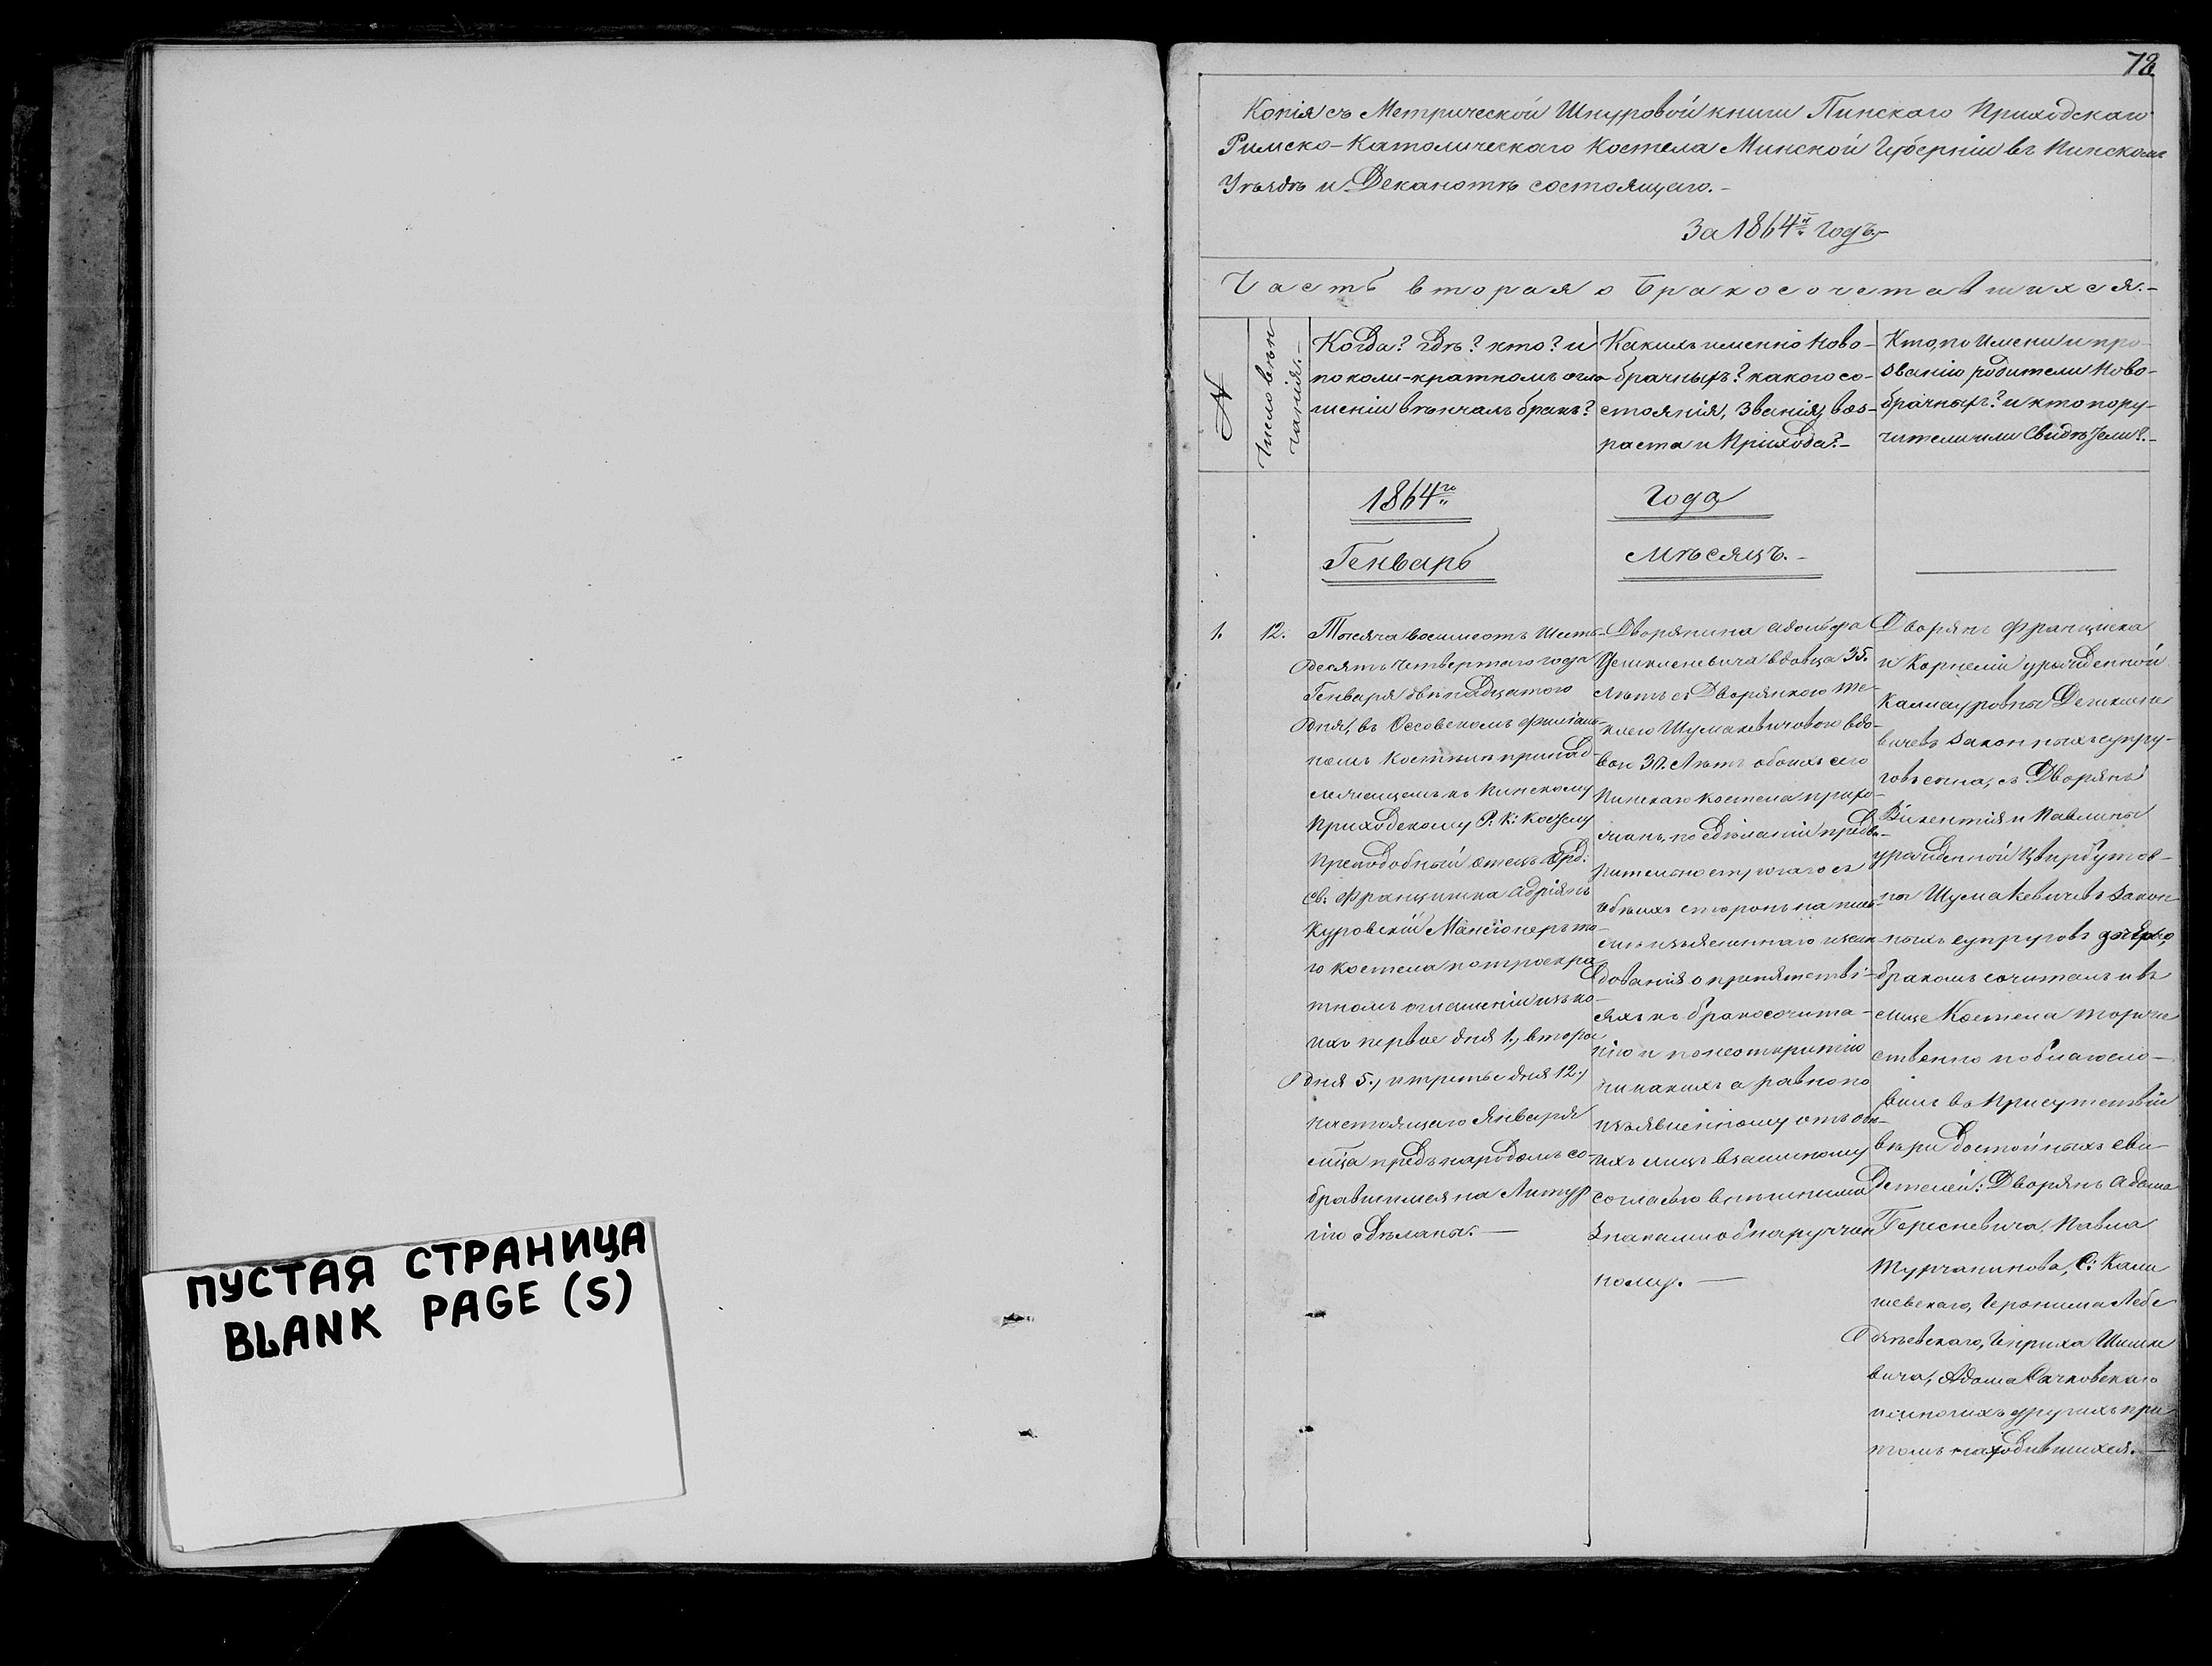 ПУСТАЯ СТРАНИЦА
BLANK PAGE (S)
78
Копія съ Метрической Шнуровой книги Пинскаго Приходскаго
Римско-Католическаго Костела Минской Губерніи въ Пинскомъ
Уѣздѣ и Деканатѣ состоящаго.-
За 1864й годъ.-
Часть вторая о Бракосочетавшихся.-
№
Число вѣн
чанія.-
Когда? гдѣ? кто? и
по коли-кратномъ огла-
шеніи вѣнчалъ бракъ?
Какихъ именно Ново-
брачныхъ? какого со-
стоянія, званія, воз-
раста и Прихода?-
Кто, по Имени и про-
званію родители Ново-
брачныхъ? и кто пору-
чители или Свидѣтели?-
1864го Года
Генварь мѣсяцъ.-
1. 12.
Тысяча восемсотъ Шесть-
десятъ четвертаго года
Генваря двѣнадцатого
дня, въ Оссовскомъ филіаль-
номъ Костѣлѣ принад-
лежащемъ къ Пинскому
Приходскому Р: К: Костелу
Преподобный отецъ Орд.
св: Франциска Адріянъ
Куровскій Мансіонеръ то-
го Костела по троекра-
тномъ оглашеніи изъ ко-
ихъ первое дня 1., второе
дня 5., и третье дня 12.,
настоящаго Января
мца предъ народомъ со-
бравшимся на Литур
гію сдѣланы.-
Дворянина Адольфа
вдовца 35.
лѣтъ съ Дворянкою Те-
клею Шумакевичовою вдо-
вою 30. Лѣтъ обоихъ сего
Пинскаго Костела прихо-
жанъ, по сдѣланіи предва-
рительно строгаго съ
обѣихъ сторонъ на пись-
мѣ изъясненнаго изслѣ-
дованія о препятстві-
яхъ къ бракосочета-
нію и по неоткрытію
никакихъ а равно по
изъявленному отъ обѣ-
ихъ лицъ взаимному
согласію внѣшними
знаками обнаружен
ному.-
Дворянъ Франциска
и Корнеліи урожденной
законныхъ супру-
говъ сына, съ Дворянъ
Викентія и Павлины
урожденной
Шумакевичевъ Закон-
ныхъ супруговъ дочерью,
бракомъ сочеталъ и въ
лице Костела торже
ственно поблагосло-
вилъ въ присутствіи
вѣри достойныхъ сви-
детелей: Дворянъ Адама
Бересневича, Павла
Турчанинова, С: Кали
шевскаго, Іеронима Лебе
дзѣевскаго, Генриха Шишке
вича, Адама Рачковскаго
и многихъ другихъ при
томъ находившихся.-